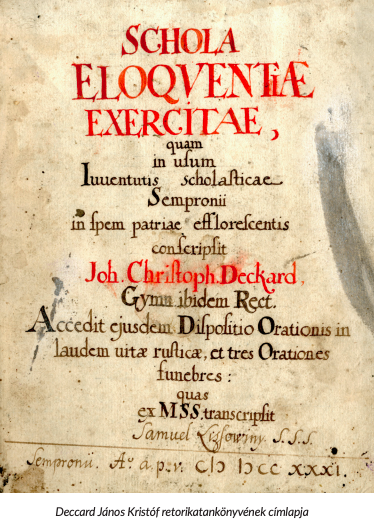 SCHOLA
ELOQVENTIÆ
EXERCITAE,
quam
in uſum
Iuuentutis scholaſticae
Sempronii
in ſpem patriae effloreſcentis
conſcripſit
Joh. Chriſtoph. Deckard,
Gymn. ibidem Rect.
Accedit ejusdem Diſpoſitio Orationis in
laudem uitæ ruſticæ, et tres Orationes
funebres:
quas
ex MSS. transcripſit
Samuel S.S.S.
Sempronii. Aº. a. p. v. CIↃ IↃCC XXXI.
Deccard János Kristóf retorikatankönyvének címlapja